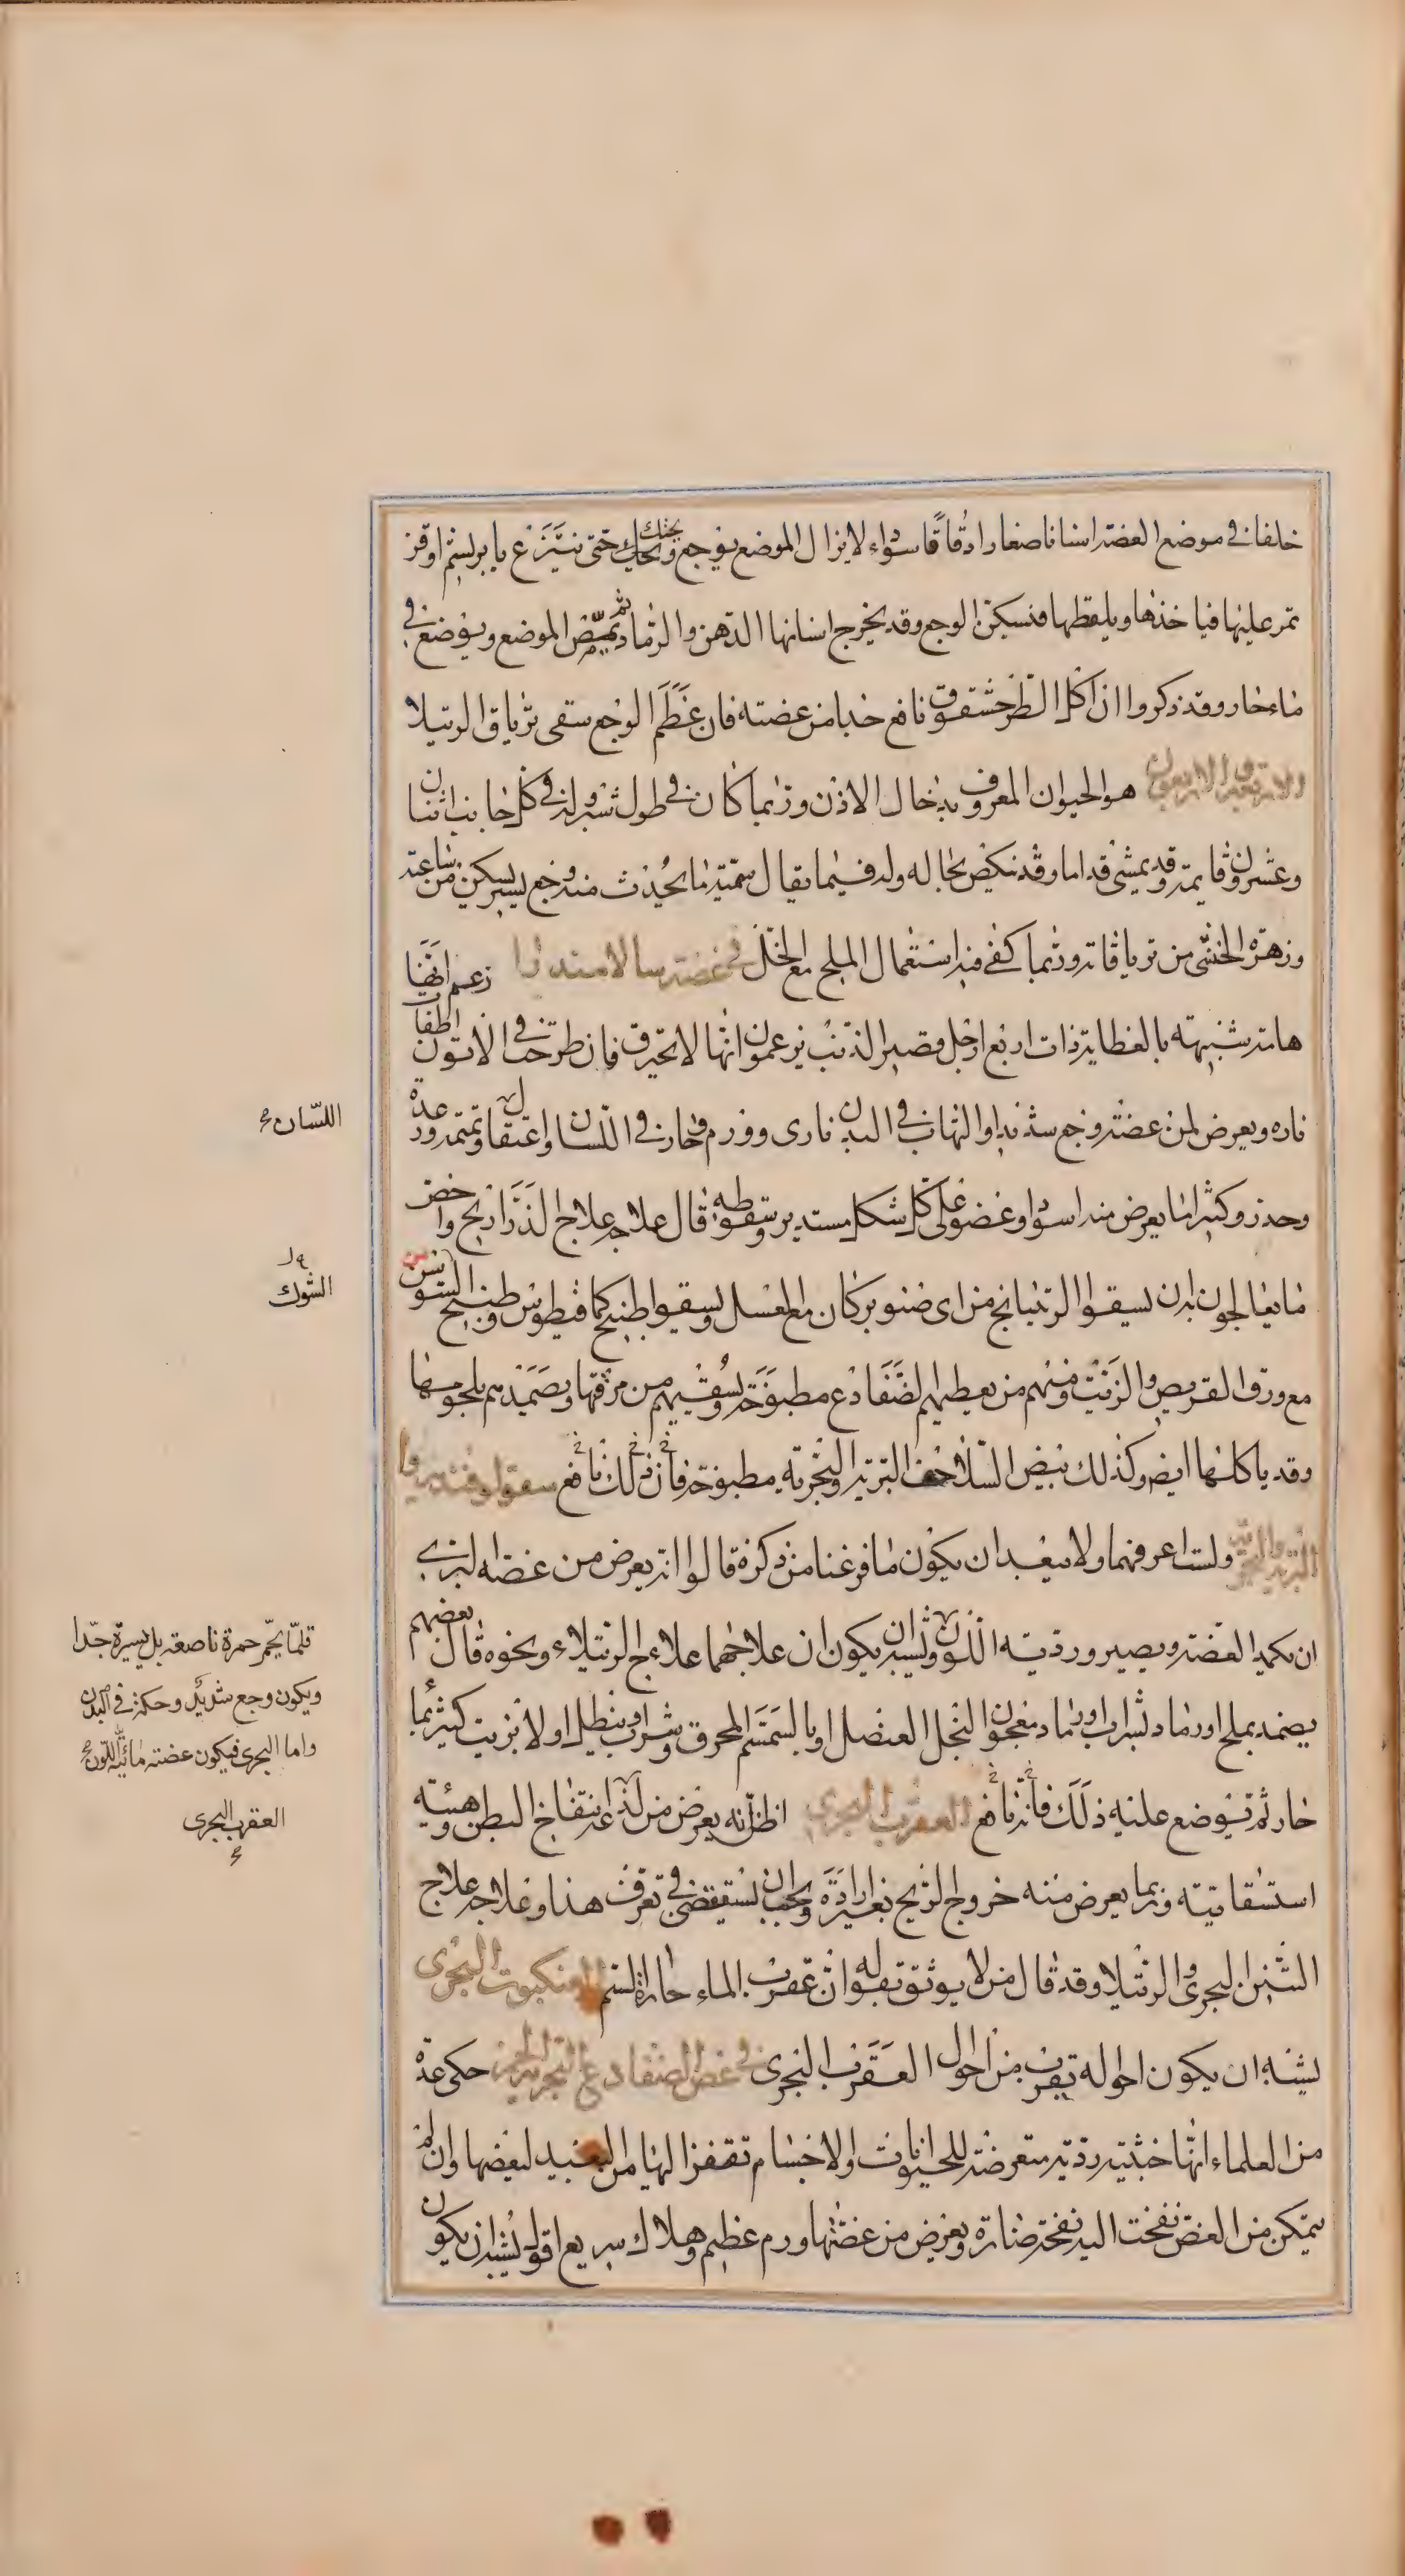 خلفا في موضع العضة اسنانا صغارا دقاقا سوداء لا يزال الموضع يوجع ويحك حتى ينتزع بابريسم او قز
تمر عليها فيأخذها ويلقطها فيسكن الوجع وقد يخرج اسنانها الدهن والرماد ثم يمص الموضع ويوضع في
ماء حار وقد ذكروا ان اكل الطرخشقوق نافع جدا من عضته فان عظم الوجع سقى ترياق الرتيلا
هو الحيوان المعروف بدخال الاذن وربما كان في طول شبر له في كل جانب اثنان
وعشرون قايمة وقد يمشي قداما وقد ينكص بحاله وله فيما يقال سمية ما يحدث منه وجع يسير يسكن من ساعته
وزهرة الخنثى من ترياقاته وربما كفى فيه استعمال الملح مع الخل في عضة سالامندرا زعم انها
هامة شبيهة بالعظاية ذات اربع ارجل قصير الذنب يزعمون انها لا تحترق فان طرحت في الاتون اطفات
ناره ويعرض لمن عضته وجع شديد او التهاب في البدن نارى وورم حار في اللسان واعتقال وتمتمة ورعدة
وخدر وكثيرا ما يعرض منه اسوداد عضو على كل شكل مستدير وسقوطه قال علاجه علاج الذراريح واخص
ما يعالجون به ان يسقوا الريتيانج من اى صنوبر كان مع العسل ويسقوا طبيخ كمافيطوس وطبيخ السوسن
مع ورق القريص والزيت ومنهم من يعطيهم الضفادع مطبوخة ويسقيهم من مرقتها ويضمدهم بلحومها
وقد ياكلها ايض وكذلك بيض السلاحف البرية والبحرية مطبوخة فان ذلك نافع سقولوفندريوا
البرية والبحرية ولست اعرفهما ولا يبعد ان يكون ما فرغنا من ذكره قالوا انه يعرض من عضة البري
ان يكمد العضة ويصير وردية اللون ويشبه ان يكون ان علاجهما علاج الرتيلاء ونحوه قال بعضهم
يضمد بملح او رماد بشراب او رماد معجون بالخل العنصل او بالسمسم المحرق وشراب وينطل اولا بزيت كثير بماء
حار ثم يوضع عليه ذلك فانه نافع العقرب البحري اظن انه يعرض من لذعه انتفاخ البطن وهيئة
استسقائية وربما يعرض منه خروج الريح بغير ارادة ويجب ان نستقصي في تعرف هذا وعلاجه علاج
التنين البحري والرتيلا وقد قال من لا يوثق بقوله ان عقرب الماء حارة السم العنكبوت البحرى
يشبه ان يكون احواله تقرب من احوال العقرب البحرى في عض الضفادع البحرية الحمر حكى عدة
من العلماء انها خبيثة ردية متعرضة للحيوانات والاجسام تقفز اليها من البعيد لتعضها وان لم
يتمكن من العض نفخت اليه نفخة ضارة ويعرض من عضتها ورم عظيم وهلاك سريع اقول يشبه ان يكون
اللسان
الشوك
قلما يحمر حمرة ناصعة بل يسيرة جدا
ويكون وجع شديد وحكة في البدن
واما البحرى فيكون عضته مائية اللون
العقرب البحرى